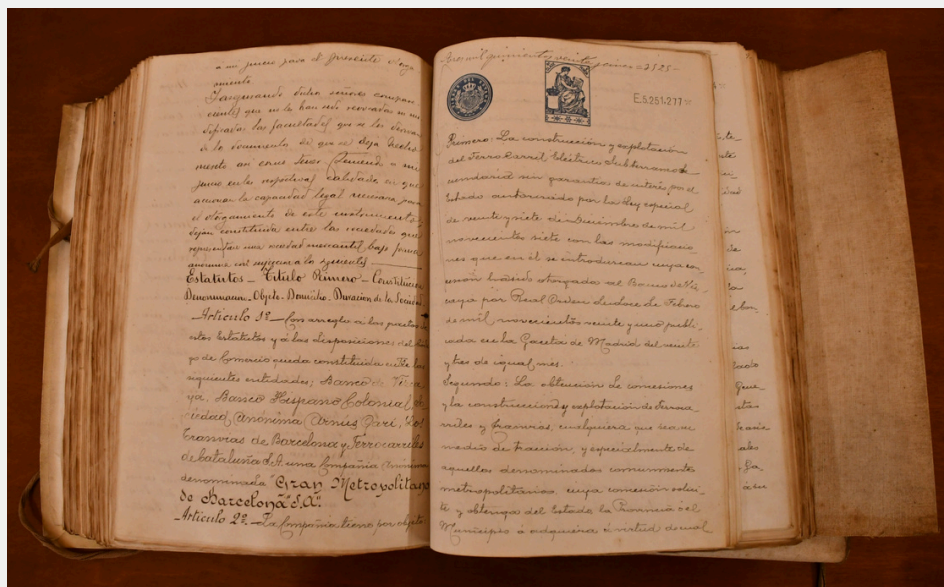 a mi juicio para el presente otorga
miento
Asegurando dichos señores compare
cientes que no le han sido revocadas ni sus
pensadas las facultades que se les
de los documentos de que se deja hecho
mento así como tener a mi
juicio en las respectivas calidades en que
accionan la capacidad legal necesaria para
el otorgamiento de este instrumento
dejan constituida entre las sociedades que
representan una sociedad mercantil bajo forma
anónima con sujeción a los siguientes
Estatutos - Título Primero - Constitución
Denominación - Objeto - Domicilio - Duración de la Sociedad
- Artículo 1º - Con arreglo a los pactos de
estos Estatutos y á las disposiciones del Códi
go de Comercio queda constituida entre las
siguientes entidades; Banco de Vizca
ya, Banco Hispano Colonial, So
ciedad Anónima Arnús Garí, Los
Tranvías de Barcelona y Ferrocarriles
de Cataluña S.A. una Compañía Anónima
denominada "Gran Metropolitano
de Barcelona" S.A."
- Artículo 2º - La Compañía tiene por objeto
tres mil quinientos veinte y cinco = 3525 -
E.5.251.277
Primero: La construcción y explotación
del Ferro Carril Eléctrico Subterraneo se-
cundario sin garantia de interés por el
Estado autorizado por la Ley especial
de veinte y siete de Diciembre de mil
novecientos siete con las modificacio
nes que en él se introduzcan cuya con-
cesión ha sido otorgada al Banco de Viz-
caya por Real Orden de doce de Febrero
de mil novecientos veinte y uno publi-
cada en la Gaceta de Madrid del veinti-
y tres de igual mes.
Segundo: La obtención de concesiones
y la construcción y explotación de Ferroca
rriles y tranvías, cualquiera que sea su
medio de tracción, y especialmente de
aquellos denominados comunmente
metropolitanos, cuya concesión solici-
te y obtenga del Estado la Provincia o el
Municipio o adquiera á virtud de cual